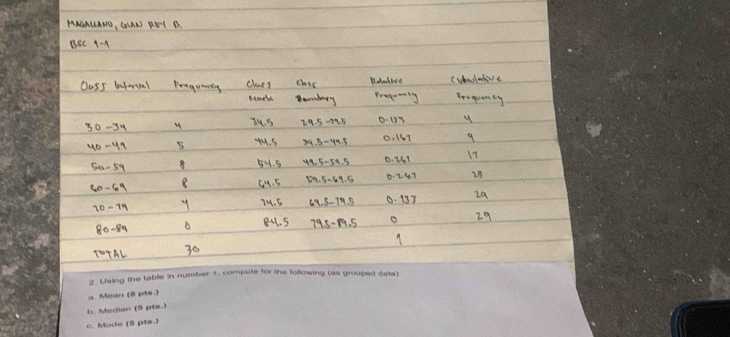 MAGALLANO, GIAN REY B.
BSC 1-1
Class Interval Frequency Class Mark Class Boundary Relative Frequency Cumulative Frequency
30-39 4 34.5 29.5-39.5 0.133 4
40-49 5 44.5 39.5-49.5 0.167 9
50-59 8 54.5 49.5-59.5 0.267 17
60-69 8 64.5 59.5-69.5 0.267 25
70-79 4 74.5 69.5-79.5 0.133 29
80-89 0 84.5 79.5-89.5 0 29
TOTAL 30 1
2. Using the table in number 1, compute for the following (as grouped data)
a. Mean (5 pts.)
b. Median (5 pts.)
c. Mode (5 pts.)